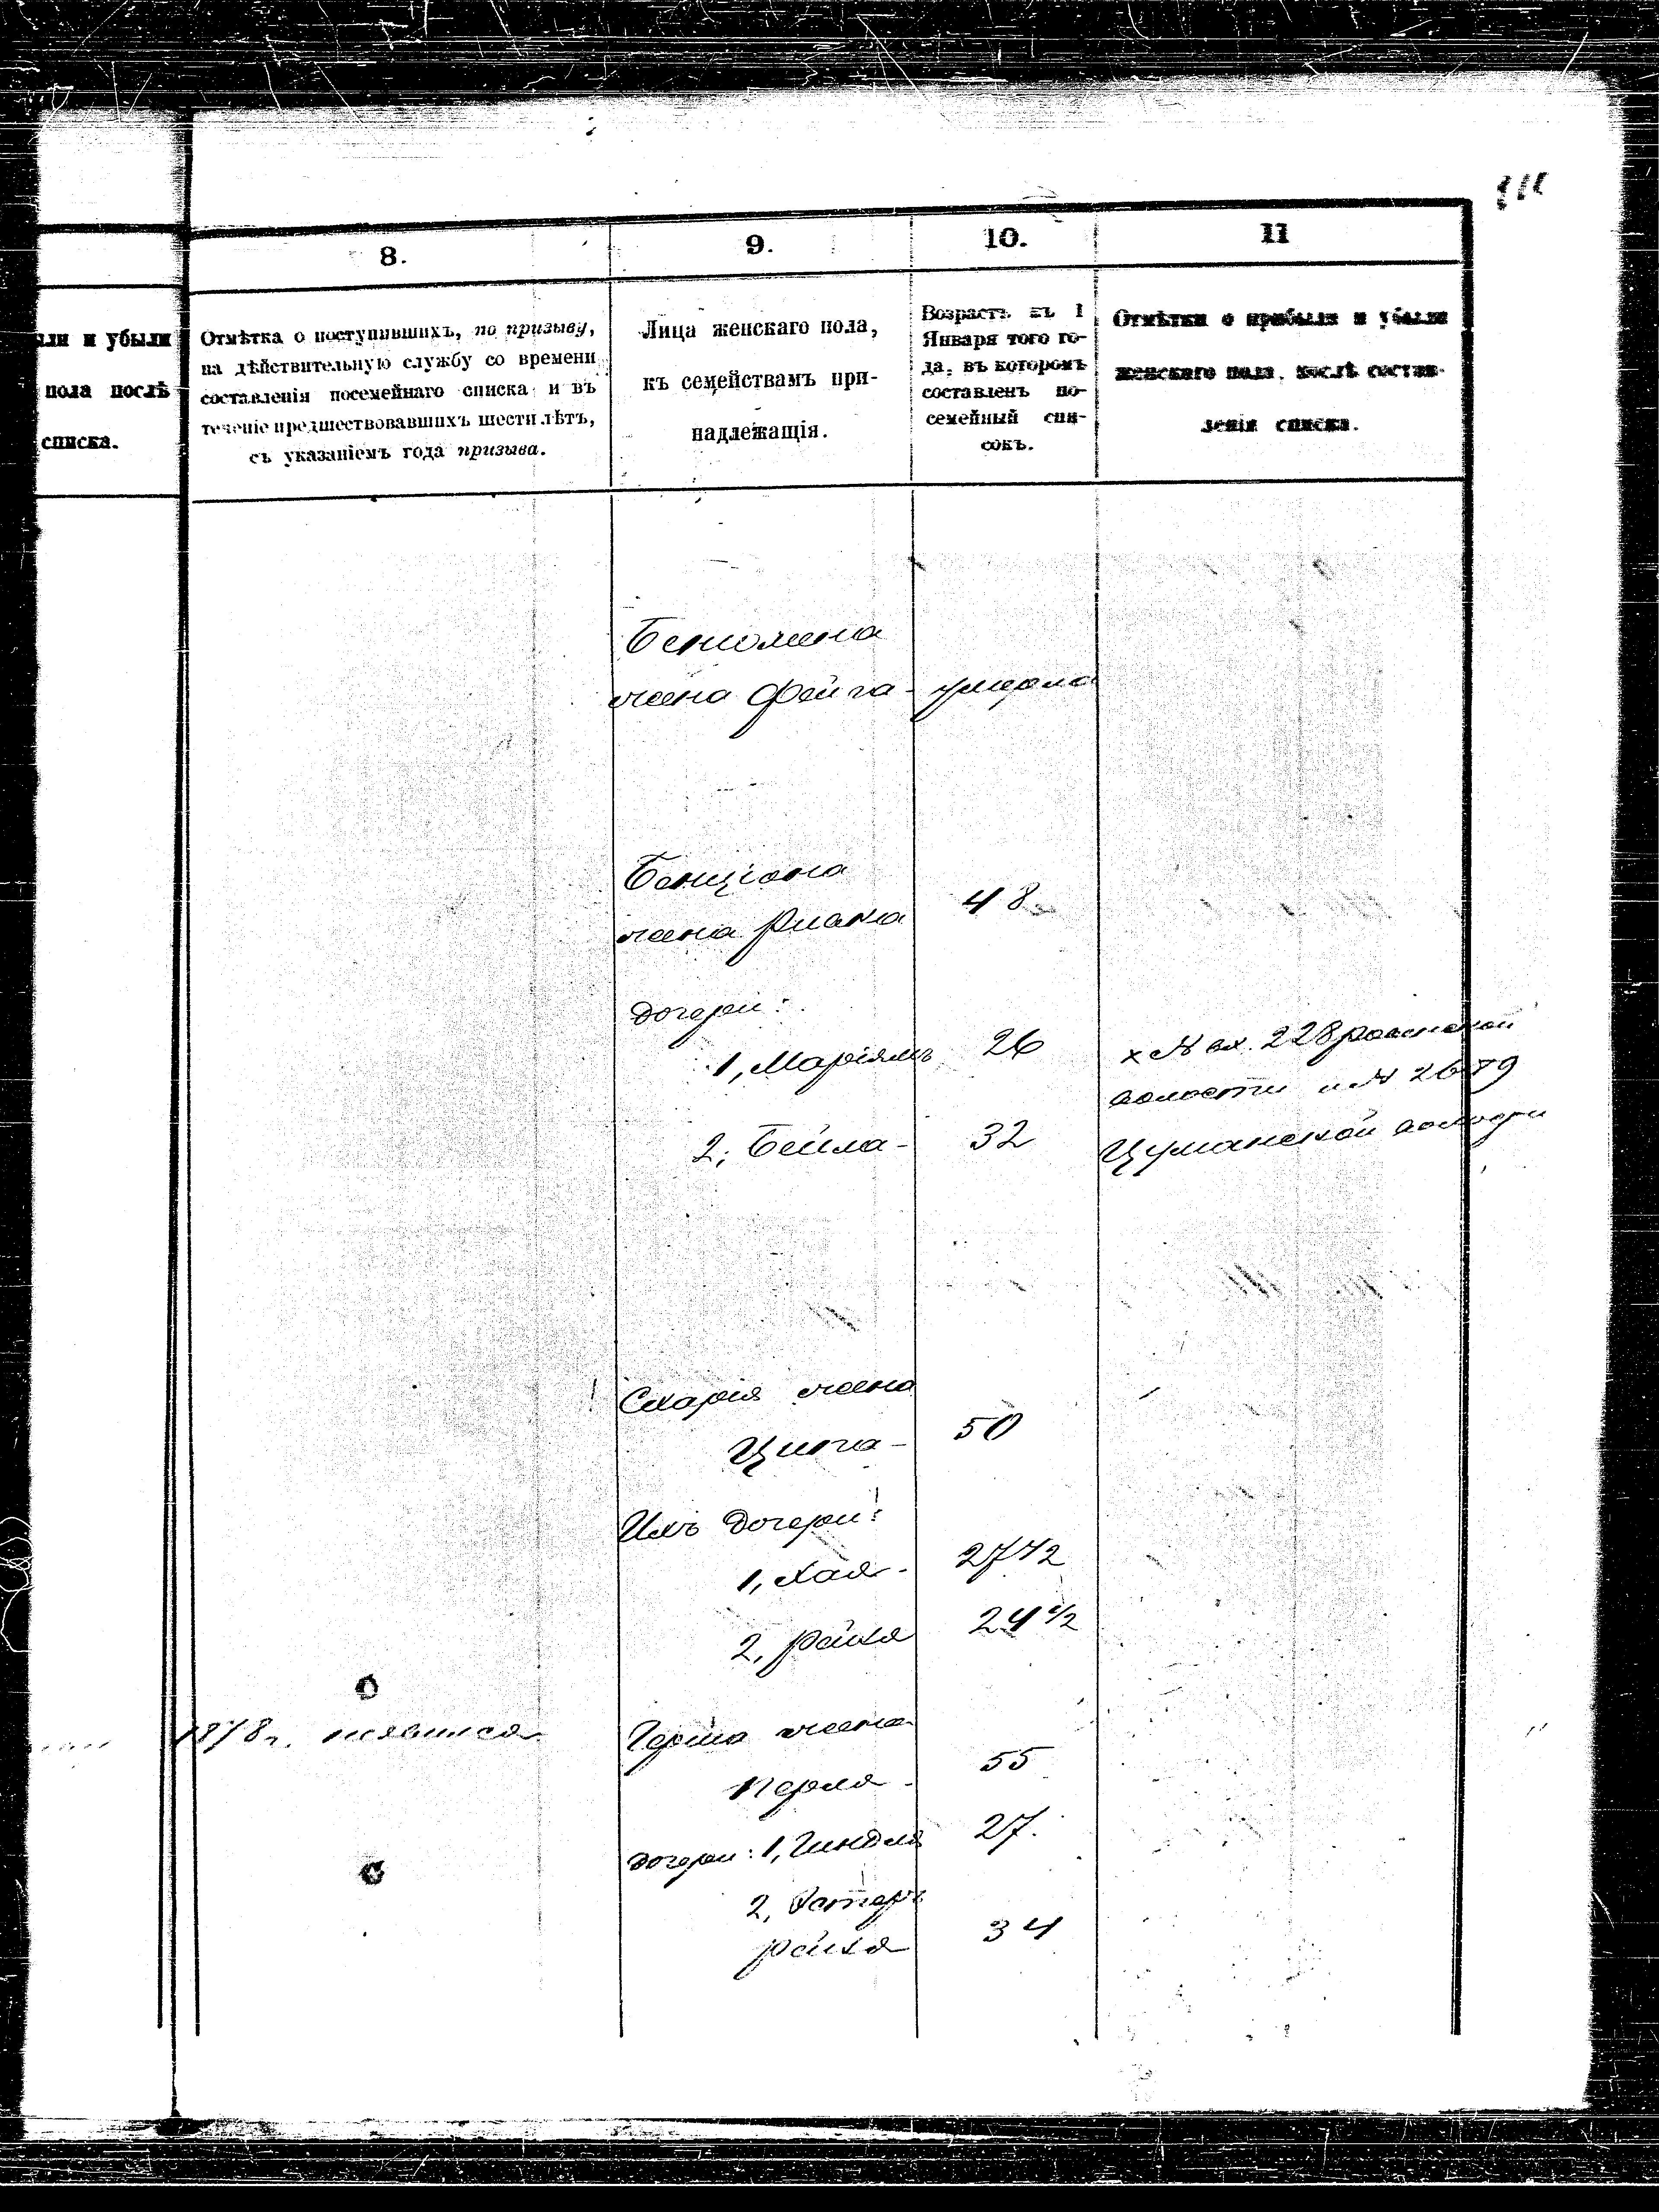 111
8.
9.
10.
11
ли и убыли
пола послѣ
списка.
Отмѣтка о поступившихъ, по призыву,
на дѣйствительную службу со времени
составленія посемейнаго списка и въ
теченіе предшествовавшихъ шести лѣтъ,
съ указаніемъ года призыва.
Лица женскаго пола,
къ семействамъ при-
надлежащія.
Возрастъ къ 1
Января того го-
да, въ которомъ
составленъ по-
семейный спи-
сокъ.
Отмѣтки о прибыли и убыли
женскаго пола, послѣ состав-
ленія списка.
Беніомина
жена Фейга - умерла
Бенціона
жена 48
дочери:
1, Маріямъ 26
х № вх. 228
волости и № 2679
2, Бейла - 32
Цуманской волости
Схарія жена
Ципа - 50
Ихъ дочери:
1, Хая - 27 1/2
2, Рейзя 24 1/2
1878 г. неявился
Герша жена
Перля - 55
дочери: 1, Гиндля 27.
2, Эстеръ
Рейзя 34